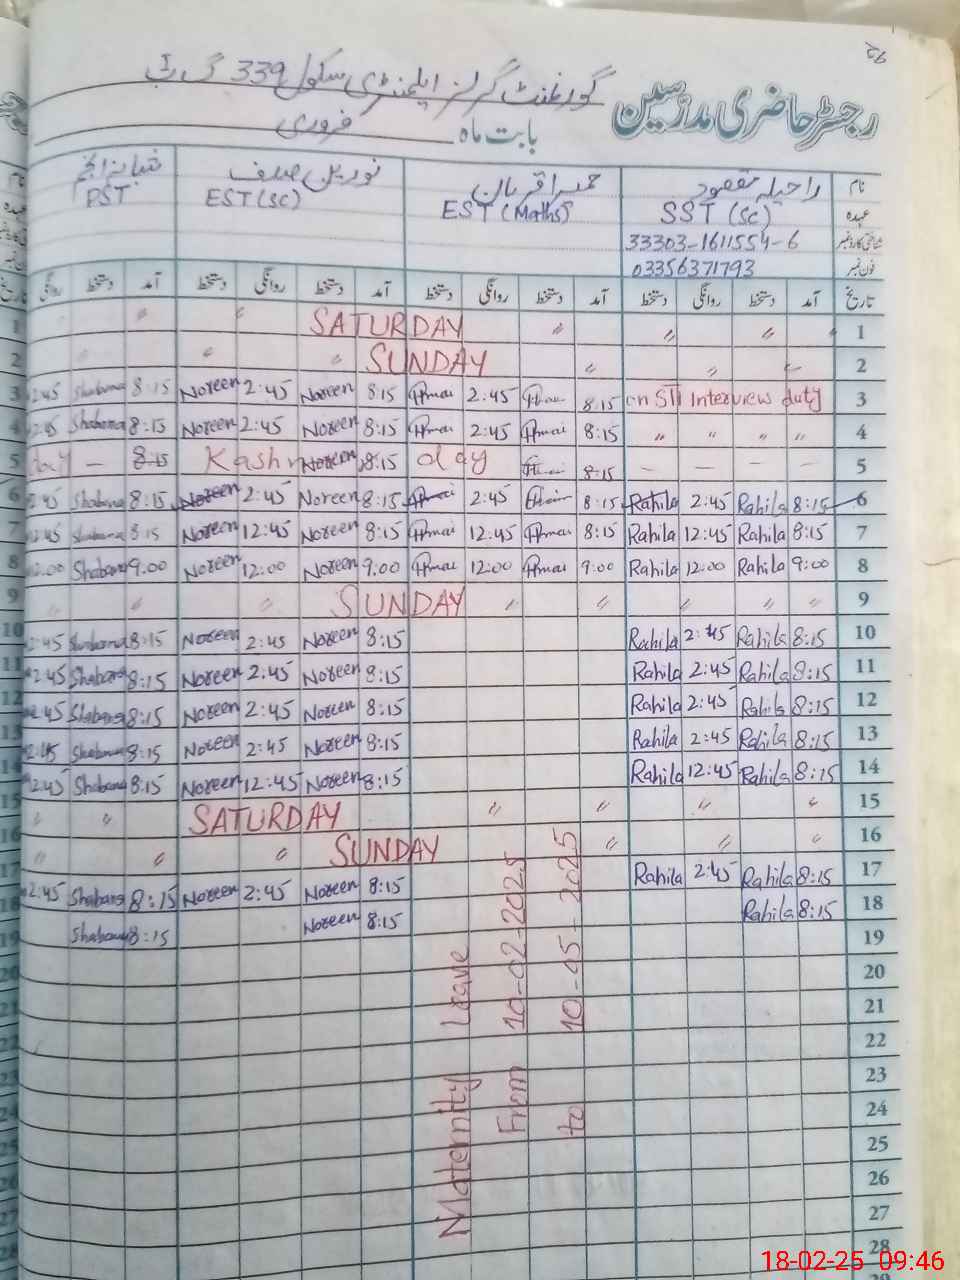 گورنمنٹ گرلز ایلیمنٹری سکول 339 گ ب
رجسٹر حاضری مدرسین
بابت ماہ فروری
نام راحیلہ مقصود حمیرا قربان نورین شبانہ انجم
عہدہ SST (SC) EST (Maths) EST (SC) PST
شناختی کارڈ نمبر 33303-1611554-6
فون نمبر 03356371793
تاریخ آمد دستخط روانگی دستخط آمد دستخط روانگی دستخط آمد دستخط روانگی دستخط آمد دستخط روانگی
〃 〃 SATURDAY 〃 〃 〃 1
〃 〃 〃 SUNDAY 〃 〃 〃 2
2:45 Shabana 8:15 Noreen 2:45 Noreen 8:15 2:45 8:15 on STI Interview duty 3
2:45 Shabana 8:15 Noreen 2:45 Noreen 8:15 2:45 8:15 〃 〃 〃 〃 4
day — 8:15 Kashmir Noreen 8:15 day 8:15 — — — — 5
2:45 Shabana 8:15 Noreen 2:45 Noreen 8:15 2:45 8:15 Rahila 2:45 Rahila 8:15 6
12:45 Shabana 8:15 Noreen 12:45 Noreen 8:15 12:45 8:15 Rahila 12:45 Rahila 8:15 7
12:00 Shabana 9:00 Noreen 12:00 Noreen 9:00 12:00 9:00 Rahila 12:00 Rahila 9:00 8
〃 〃 〃 SUNDAY 〃 〃 〃 〃 〃 9
2:45 Shabana 8:15 Noreen 2:45 Noreen 8:15 Rahila 2:45 Rahila 8:15 10
2:45 Shabana 8:15 Noreen 2:45 Noreen 8:15 Rahila 2:45 Rahila 8:15 11
2:45 Shabana 8:15 Noreen 2:45 Noreen 8:15 Rahila 2:45 Rahila 8:15 12
2:45 Shabana 8:15 Noreen 2:45 Noreen 8:15 Rahila 2:45 Rahila 8:15 13
12:45 Shabana 8:15 Noreen 12:45 Noreen 8:15 Rahila 12:45 Rahila 8:15 14
〃 〃 SATURDAY 〃 〃 〃 〃 15
〃 〃 〃 SUNDAY 〃 〃 〃 16
2:45 Shabana 8:15 Noreen 2:45 Noreen 8:15 Rahila 2:45 Rahila 8:15 17
Shabana 8:15 Noreen 8:15 Rahila 8:15 18
19
20
21
22
23
24
25
26
27
28
Maternity Leave
From 10-02-2025
to 10-05-2025
18-02-25 09:46